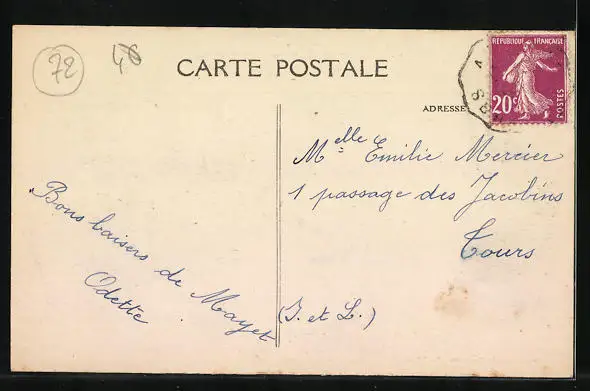 72
CARTE POSTALE
REPUBLIQUE FRANÇAISE
20c
POSTES
ADRESSE
Melle Emilie Mercier
1 passage des Jacobins
Tours
(I. et L.)
Bons baisers de Mayet
Odette